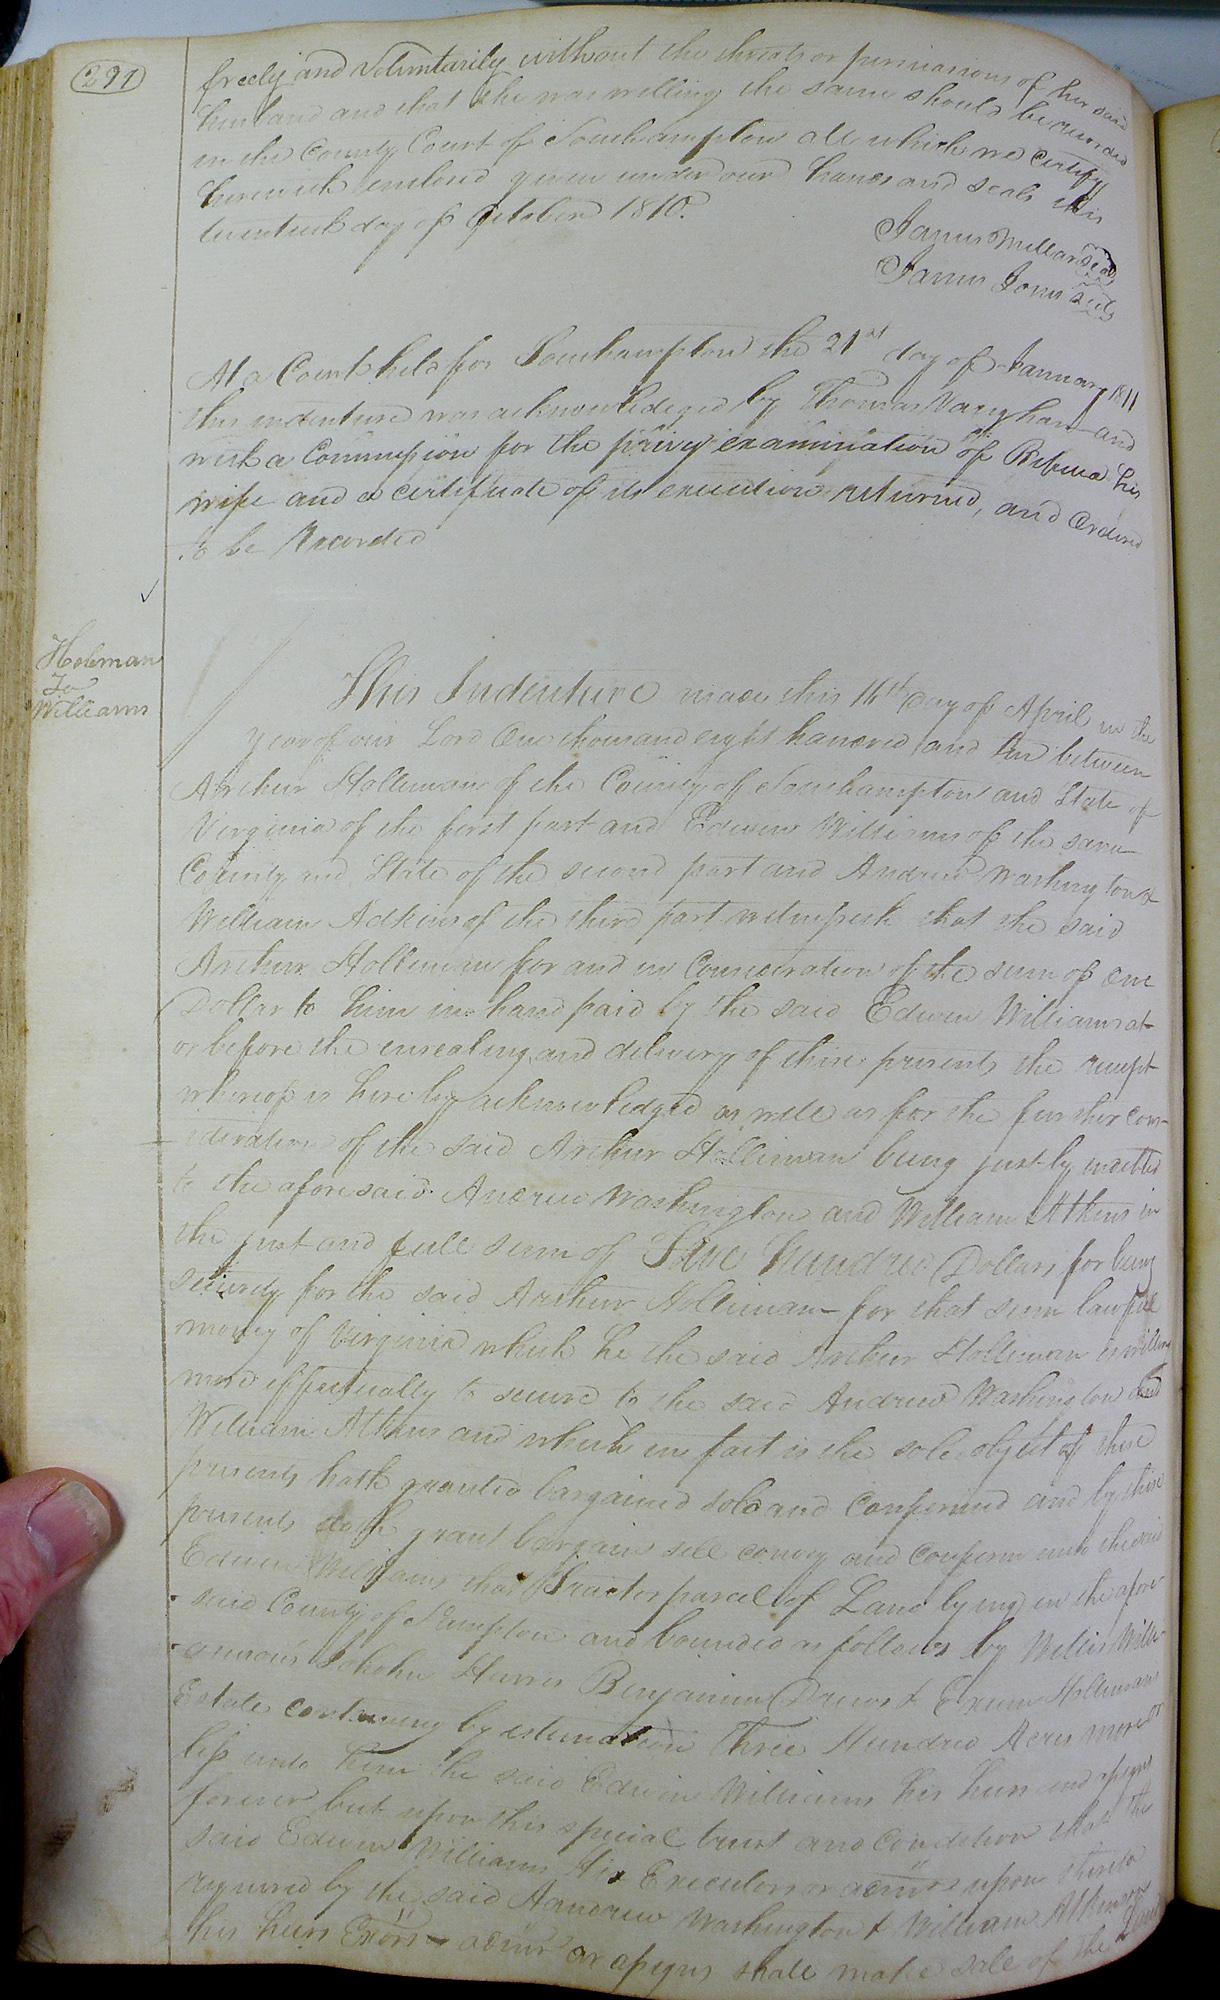 291
freely and voluntarily without the threats or persuasions of her said
husband and that she was willing the same should be recorded
in the County Court of Southampton all which we certify
herewith enclosed given under our hands and seals this
twentieth day of October 1810.
James Millar Seal
James Jones Seal
At a Court held for Southampton the 21st day of January 1811
this indenture was acknowledged by Thomas Vaughan and
with a Commission for the privy examination of Rebecca his
wife and a certificate of its execution returned, and ordered
to be Recorded
Holeman
To
Williams
This Indenture made this 14th day of April in the
year of our Lord One thousand eight hundred and ten between
Arthur Holliman of the County of Southampton and State of
Virginia of the first part and Edwin Williams of the same
County and State of the second part and Andrew Washington &
William Adkins of the third part witnesseth that the said
Arthur Holliman for and in Consideration of the sum of one
Dollar to him in hand paid by the said Edwin Williams at
or before the ensealing and delivery of these presents the receipt
whereof is hereby acknowledged as well as for the further con-
sideration of the said Arthur Holliman being justly indebted
to the aforesaid Andrew Washington and William Atkins in
the just and full sum of Five Hundred Dollars for being
security for the said Arthur Holliman for that sum lawful
money of Virginia which he the said Arthur Holliman is willing
more effectually to secure to the said Andrew Washington and
William Atkins and which in fact is the sole object of these
presents hath granted bargained sold and Confirmed and by these
presents doth grant bargain sell convey and confirm unto the said
Edwin Williams that Tract or parcel of Land lying in the afore-
said County of S.hampton and bounded as follows by Willis Willi-
amson's Harris Benjamin Drews & Exum Hollimans
Estate containing by estimation Three Hundred Acres more or
less unto him the said Edwin Williams his heirs and assigns
forever but upon this special trust and Condition that the
said Edwin Williams His Executors or admrs upon thereto
required by the said Aandrew Washington & William Atkinson
his heirs Exors admrs or assigns shall make sale of the Land